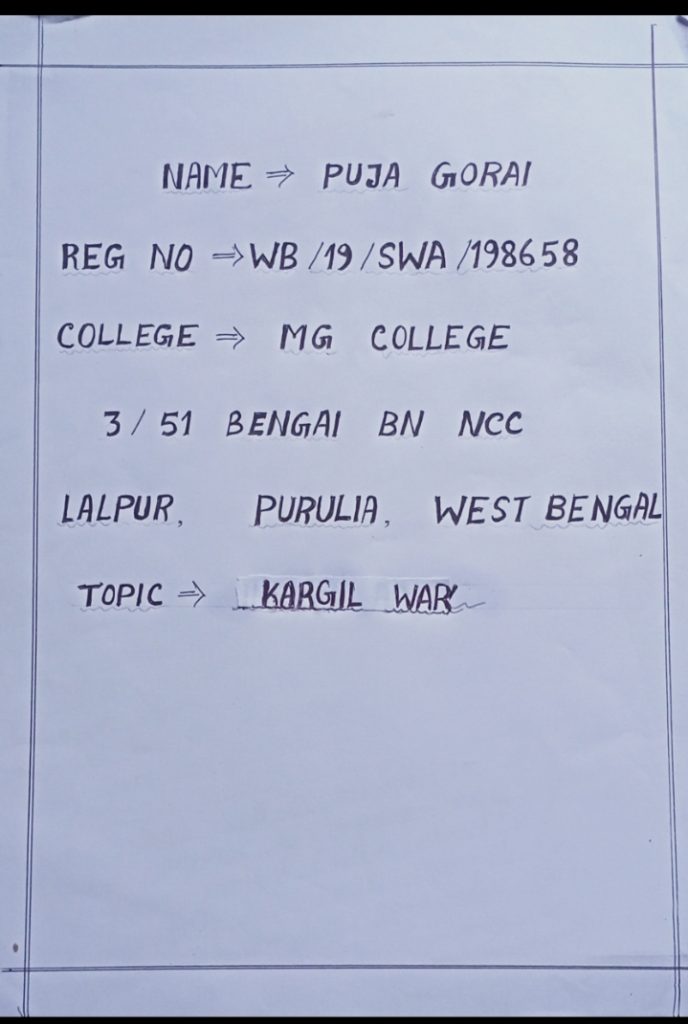 NAME ⇒ PUJA GORAI
REG NO ⇒ WB/19/SWA/198658
COLLEGE ⇒ MG COLLEGE
3/51 BENGAI BN NCC
LALPUR, PURULIA, WEST BENGAL
TOPIC ⇒ KARGIL WAR